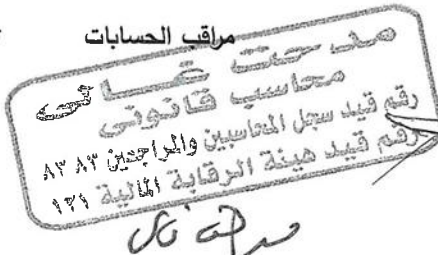 مراقب الحسابات
مدحت غالى
محاسب قانونى
رقم قيد سجل المحاسبين والمراجعين ٨٣٨٣
رقم قيد هيئة الرقابة المالية ١٢١